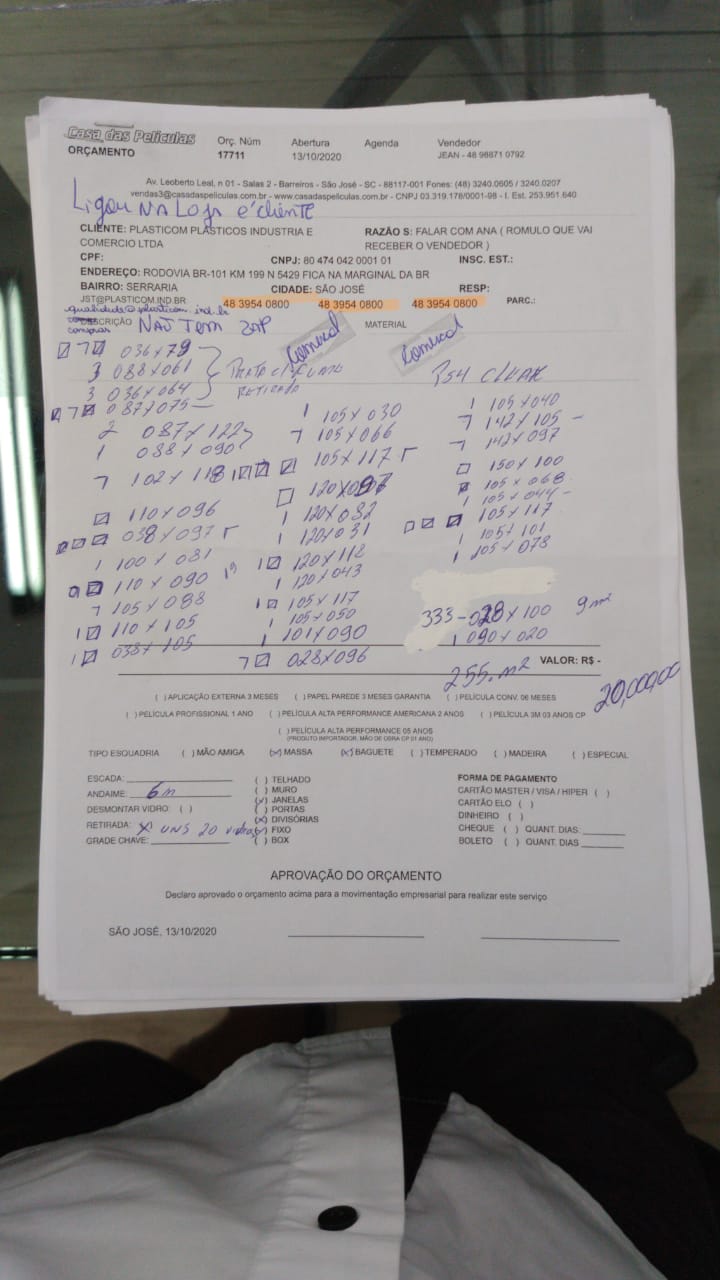 Casa das Películas
ORÇAMENTO
Orç. Núm Abertura Agenda Vendedor
17711 13/10/2020 JEAN - 48 98871 0792
Av. Leoberto Leal, n 01 - Salas 2 - Barreiros - São José - SC - 88117-001 Fones: (48) 3240.0605 / 3240.0207
vendas3@casadaspeliculas.com.br - www.casadaspeliculas.com.br - CNPJ 03.319.178/0001-98 - I. Est. 253.951.640
Ligou NA Loja é cliente
CLIENTE: PLASTICOM PLÁSTICOS INDUSTRIA E COMERCIO LTDA
RAZÃO S: FALAR COM ANA ( ROMULO QUE VAI RECEBER O VENDEDOR )
CPF: CNPJ: 80 474 042 0001 01 INSC. EST.:
ENDEREÇO: RODOVIA BR-101 KM 199 N 5429 FICA NA MARGINAL DA BR
BAIRRO: SERRARIA CIDADE: SÃO JOSÉ RESP:
JST@PLASTICOM.IND.BR 48 3954 0800 48 3954 0800 48 3954 0800 PARC.:
qualidade@plasticom.ind.br
compras
DESCRIÇÃO NAJ TEM ZAP MATERIAL
Comercial Comercial
036x79
3 088x061
3 036x064
RETIRADA
087x075
2 087x122
1 088x090
7 102x118
110x096
038x097
1 100x081
110x090
7 105x088
110x105
038x105
1 105x030
7 105x066
105x117
1 120x082
1 120x031
120x118
1 120x043
105x117
1 105x050
1 101x090
7 028x096
PS4 CLEAR
1 105x040
7 142x105
7 142x097
150x100
105x068
1 105x044
105x117
105x101
1 105x078
333-028x100 9m²
1 090x020
255.m² VALOR: R$ -
20,000,00
( ) APLICAÇÃO EXTERNA 3 MESES ( ) PAPEL PAREDE 3 MESES GARANTIA ( ) PELÍCULA CONV. 06 MESES
( ) PELÍCULA PROFISSIONAL 1 ANO ( ) PELÍCULA ALTA PERFORMANCE AMERICANA 2 ANOS ( ) PELÍCULA 3M 03 ANOS CP
( ) PELÍCULA ALTA PERFORMANCE 05 ANOS
(PRODUTO IMPORTADOR, MÃO DE OBRA CP 01 ANO)
TIPO ESQUADRIA ( ) MÃO AMIGA (x) MASSA (x) BAGUETE ( ) TEMPERADO ( ) MADEIRA ( ) ESPECIAL
ESCADA:
ANDAIME: 6m
DESMONTAR VIDRO: ( )
RETIRADA: x uns 20 vidros
GRADE CHAVE:
( ) TELHADO
( ) MURO
(x) JANELAS
( ) PORTAS
(x) DIVISÓRIAS
(x) FIXO
( ) BOX
FORMA DE PAGAMENTO
CARTÃO MASTER / VISA / HIPER ( )
CARTÃO ELO ( )
DINHEIRO ( )
CHEQUE ( ) QUANT. DIAS:
BOLETO ( ) QUANT. DIAS
APROVAÇÃO DO ORÇAMENTO
Declaro aprovado o orçamento acima para a movimentação empresarial para realizar este serviço
SÃO JOSÉ, 13/10/2020